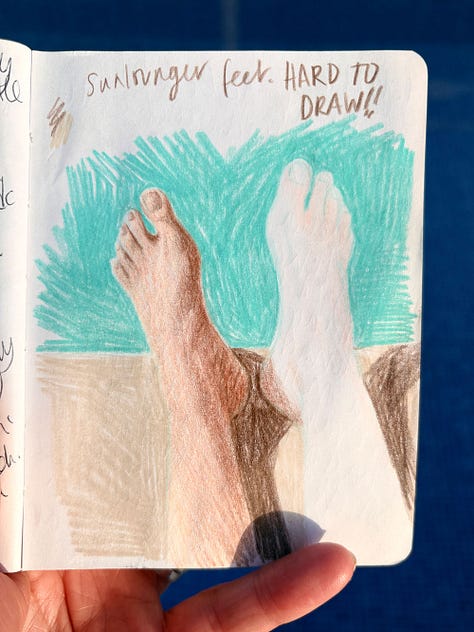 sunlounger feet. HARD TO
DRAW!!